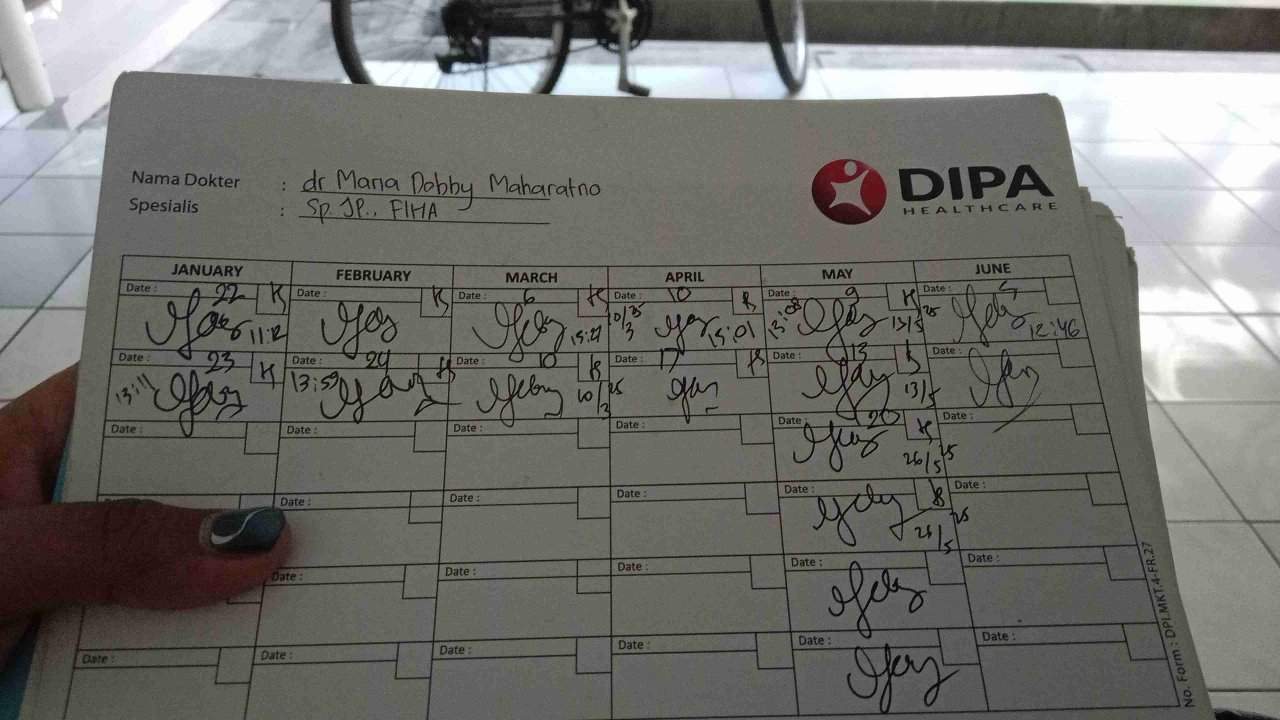 Nama Dokter : dr Maria Dobby Maharatno
Spesialis : Sp JP., FIHA
DIPA
HEALTHCARE
JANUARY FEBRUARY MARCH APRIL MAY JUNE
Date : 22 K Date : K Date : 6 K Date : 10 K Date : 9 K Date :
11:12 15:27 10/3 25 15:01 13:08 13/5 25 12:46
Date : 23 K Date : 24 K Date : 10 K Date : 17 K Date : 13 K Date :
13:11 13:59 10/3 25 13/5
Date : Date : Date : Date : Date : 20 K Date :
26/5 25
Date : Date : Date : Date : K Date :
26/5 25
Date : Date : Date : Date : Date :
Date : Date : Date : Date : Date : Date :
No. Form : DPI.MKT.4-FR.27